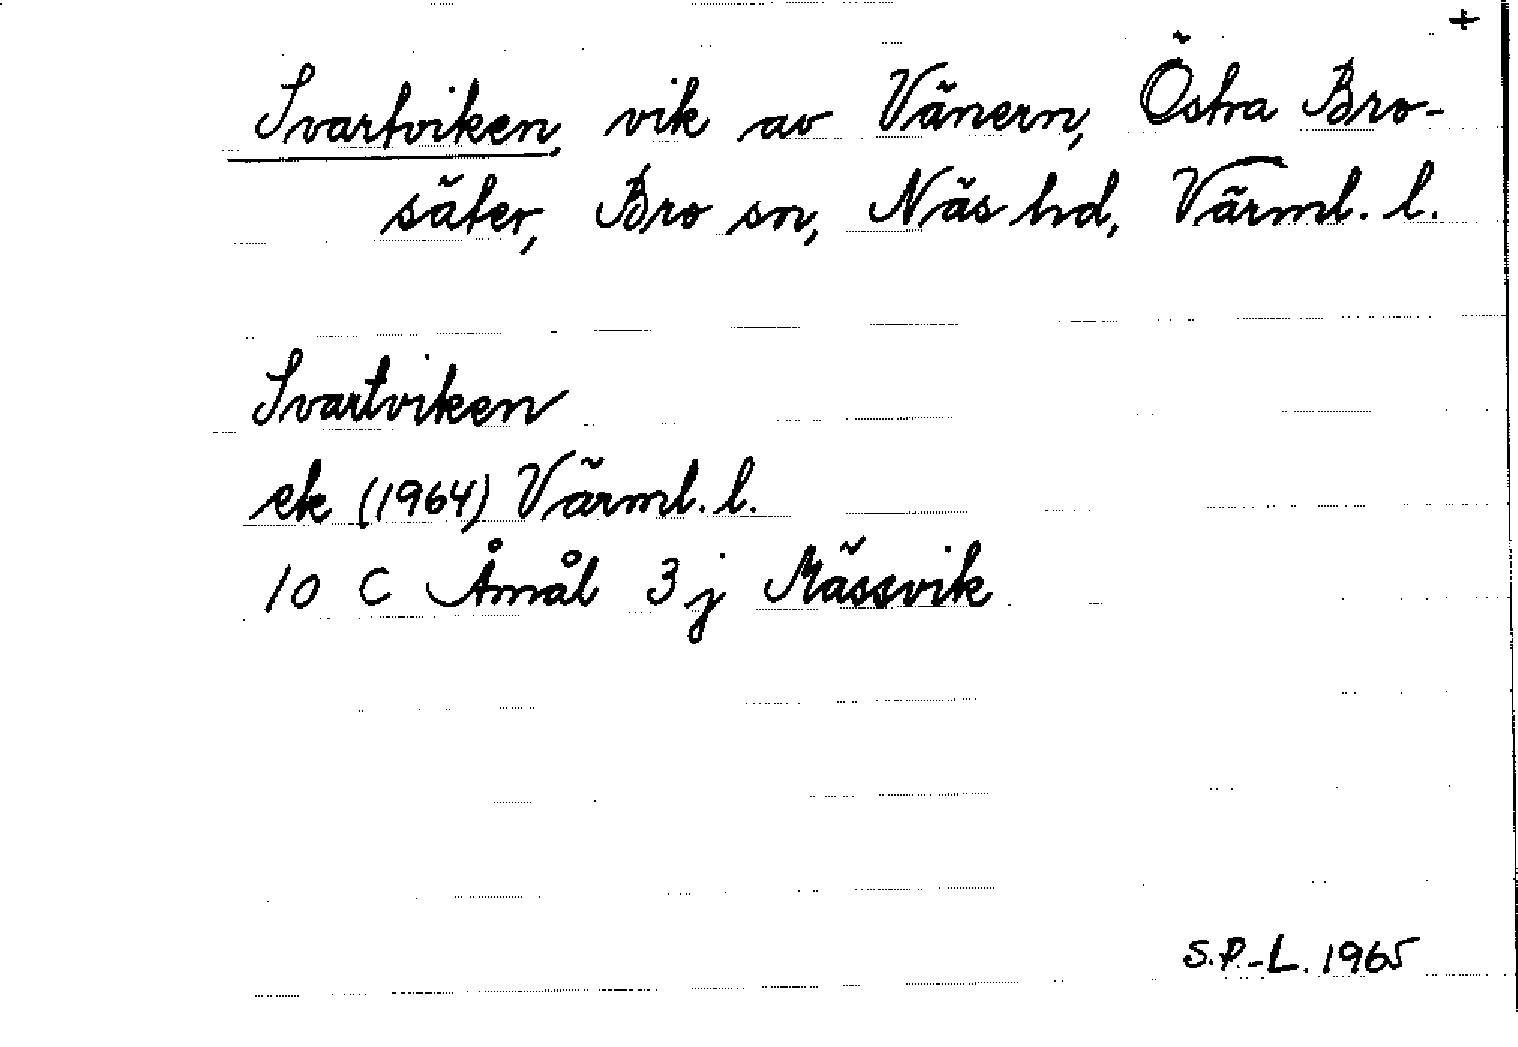 +
Svartviken, vik av Vänern, Östra Bro-
säter, Bro sn, Näs hd, Värml. l.
Svartviken
ek (1964) Värml. l.
10 C Åmål 3 j Mässvik
S.P.-L. 1965